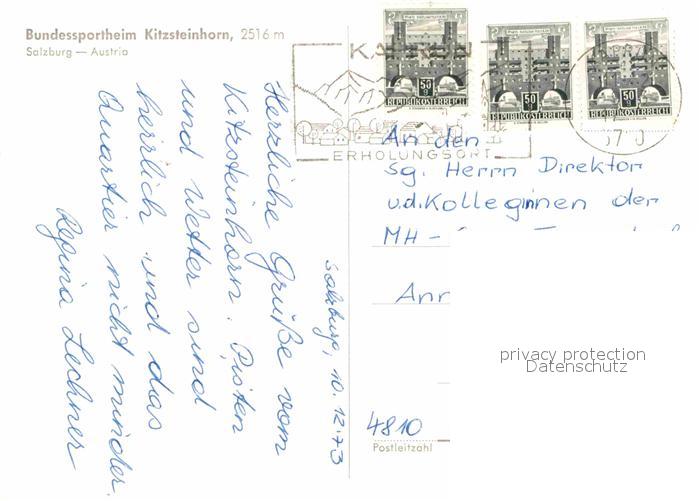 Bundessportheim Kitzsteinhorn, 2516 m
Salzburg — Austria
Salzburg, 10.12.73
Herzliche Grüße vom
Kitzsteinhorn. Pisten
und Wetter sind
herrlich und das
Quartier nicht minder.
Regina Lechner
KAPRUN
ERHOLUNGSORT
50
REPUBLIK ÖSTERREICH
50
REPUBLIK ÖSTERREICH
50
REPUBLIK ÖSTERREICH
An den
sg. Herrn Direktor
u.d. Kolleginnen der
MH-
Anr
4810
Postleitzahl
privacy protection
Datenschutz